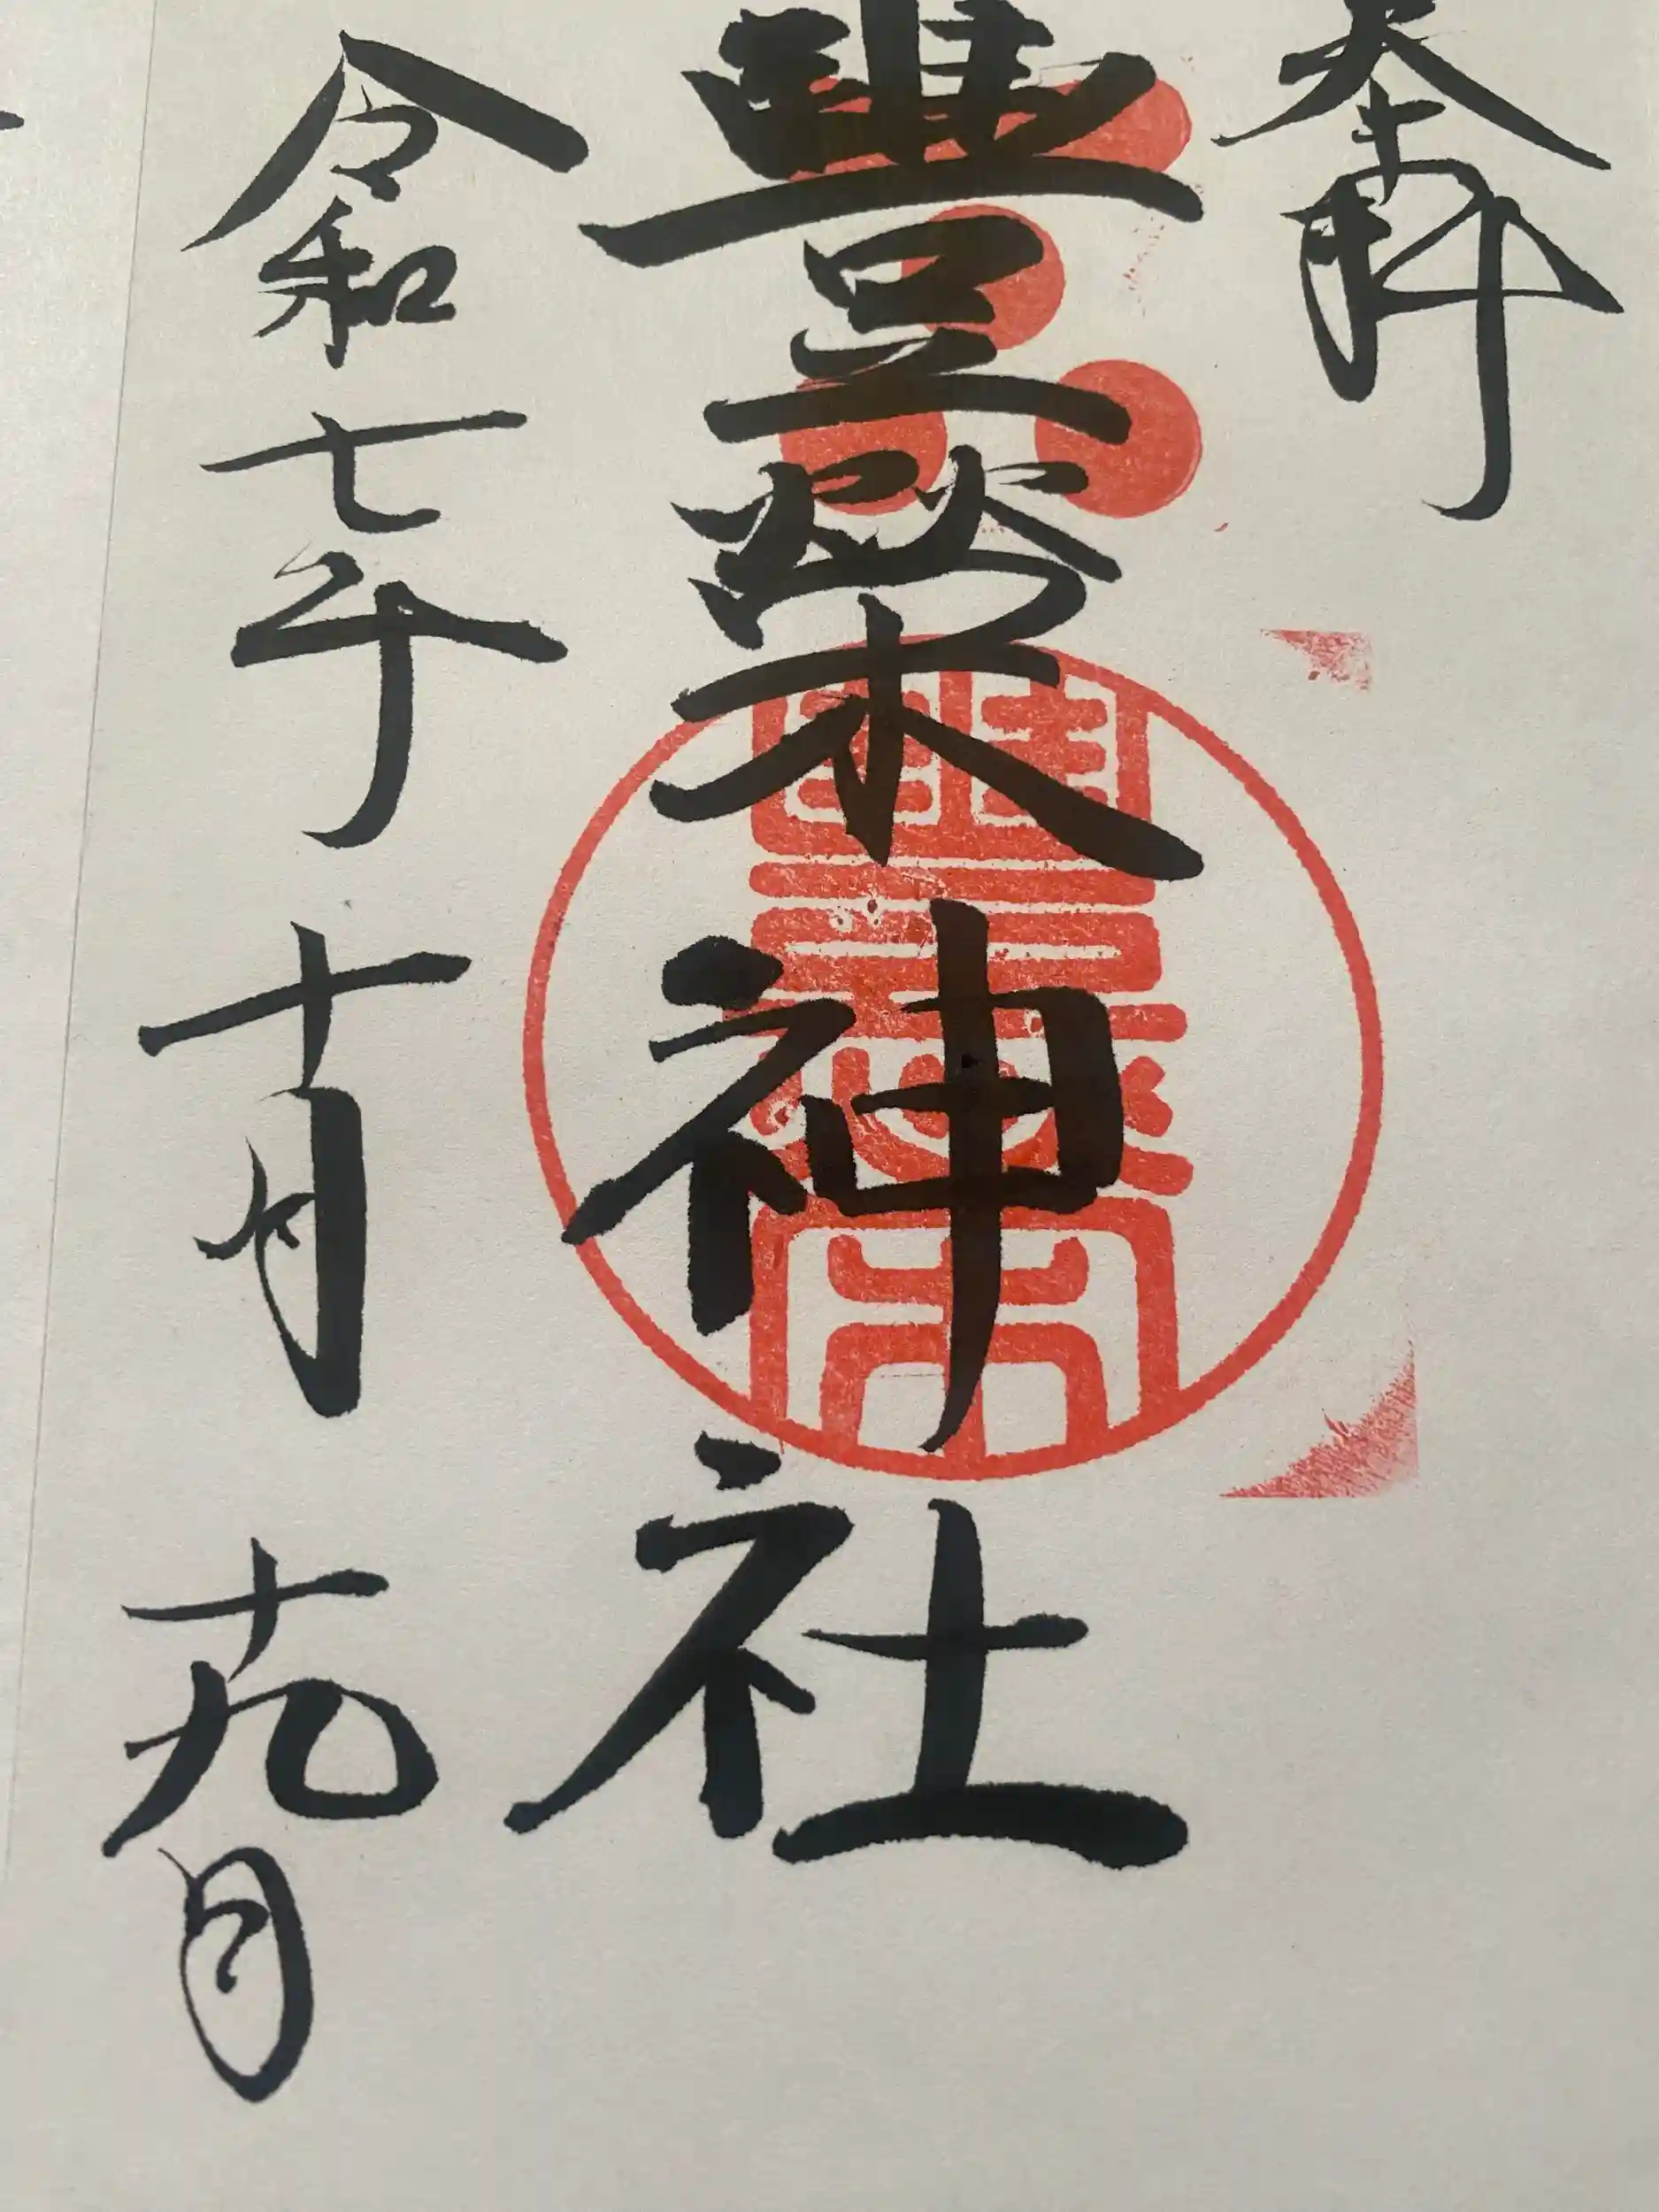 奉拝
豊榮神社
令和七年十月十九日